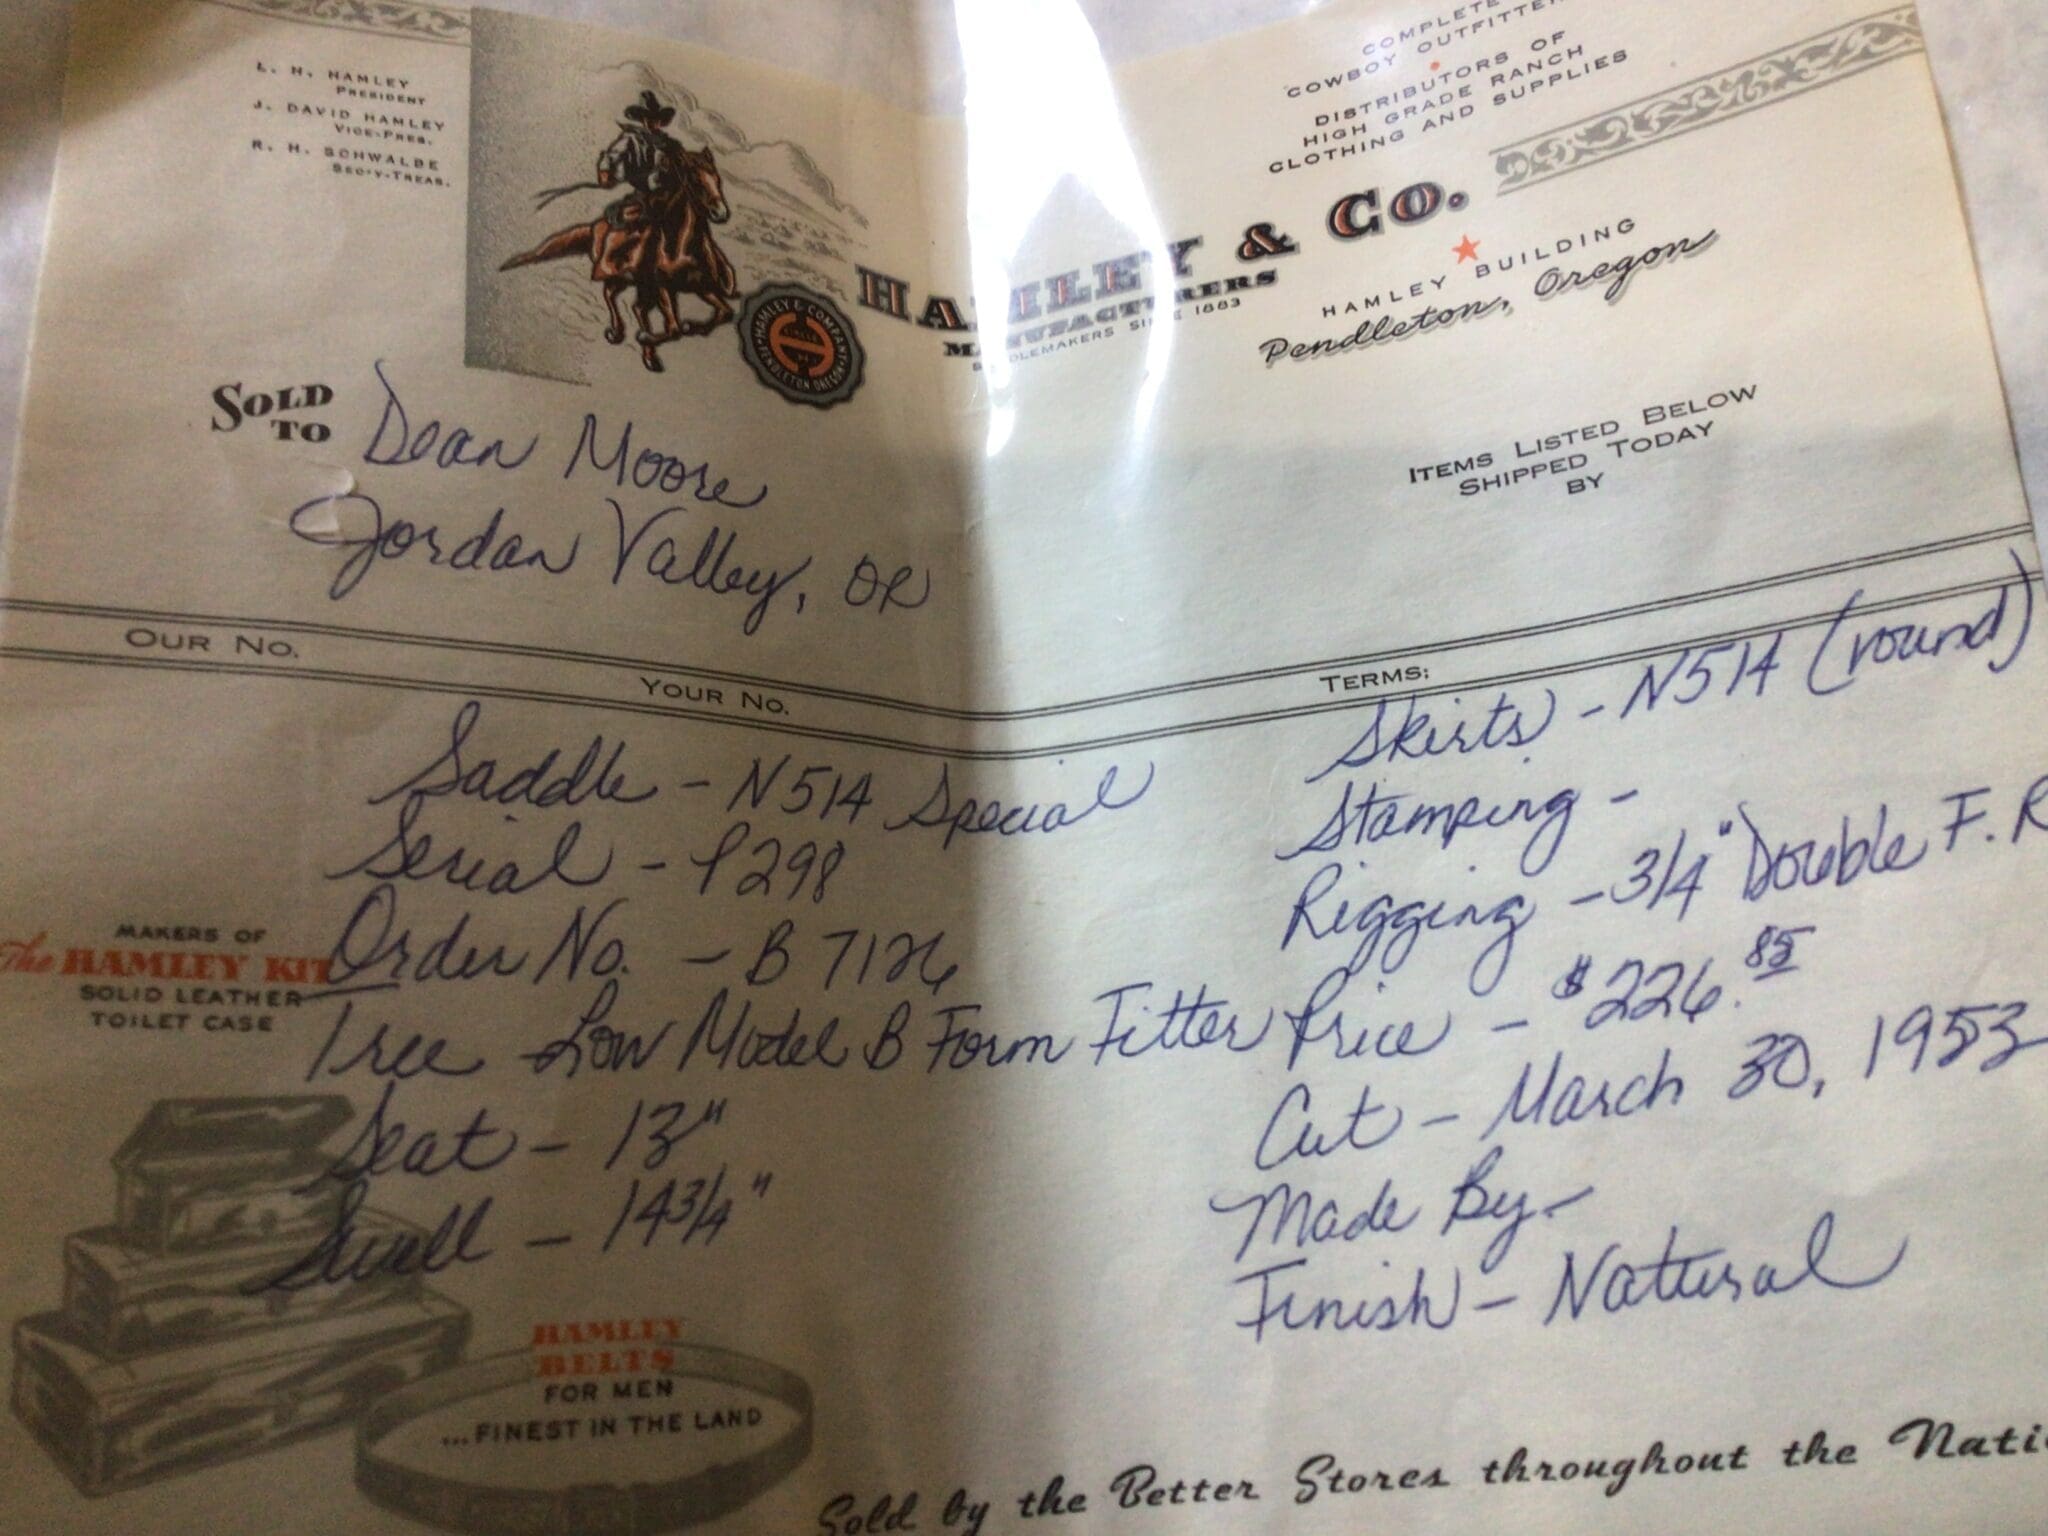 L. H. HAMLEY
PRESIDENT
J. DAVID HAMLEY
VICE-PRES.
R. H. SCHWALBE
SEC'Y-TREAS.
COMPLETE
COWBOY OUTFITTE
DISTRIBUTORS OF
HIGH GRADE RANCH
CLOTHING AND SUPPLIES
HAMLEY & CO.
MANUFACTURERS
SINCE 1883
HAMLEY & COMPANY
PENDLETON OREGON
HAMLEY BUILDING
Pendleton, Oregon
SOLD
TO
Dean Moore
Jordan Valley, OR
ITEMS LISTED BELOW
SHIPPED TODAY
BY
OUR NO.
YOUR NO.
TERMS:
Saddle - N514 Special
Serial - P298
Order No. - B 7126
Tree - Low Model B Form Fitter
Seat - 13"
Swell - 14 3/4"
Skirts - N514 (round)
Stamping -
Rigging - 3/4" Double F. R
Price - $226.85
Cut - March 30, 1953
Made By -
Finish - Natural
MAKERS OF
The HAMLEY KIT
SOLID LEATHER
TOILET CASE
HAMLEY
BELTS
FOR MEN
...FINEST IN THE LAND
Sold by the Better Stores throughout the Nati